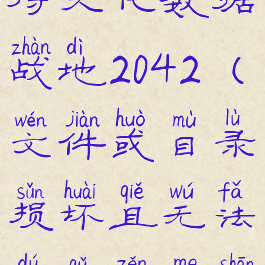 zhàn dì
战地2042（
wén jiàn huò mù lù
文件或目录
sǔn huài qiě wú fǎ
损坏且无法